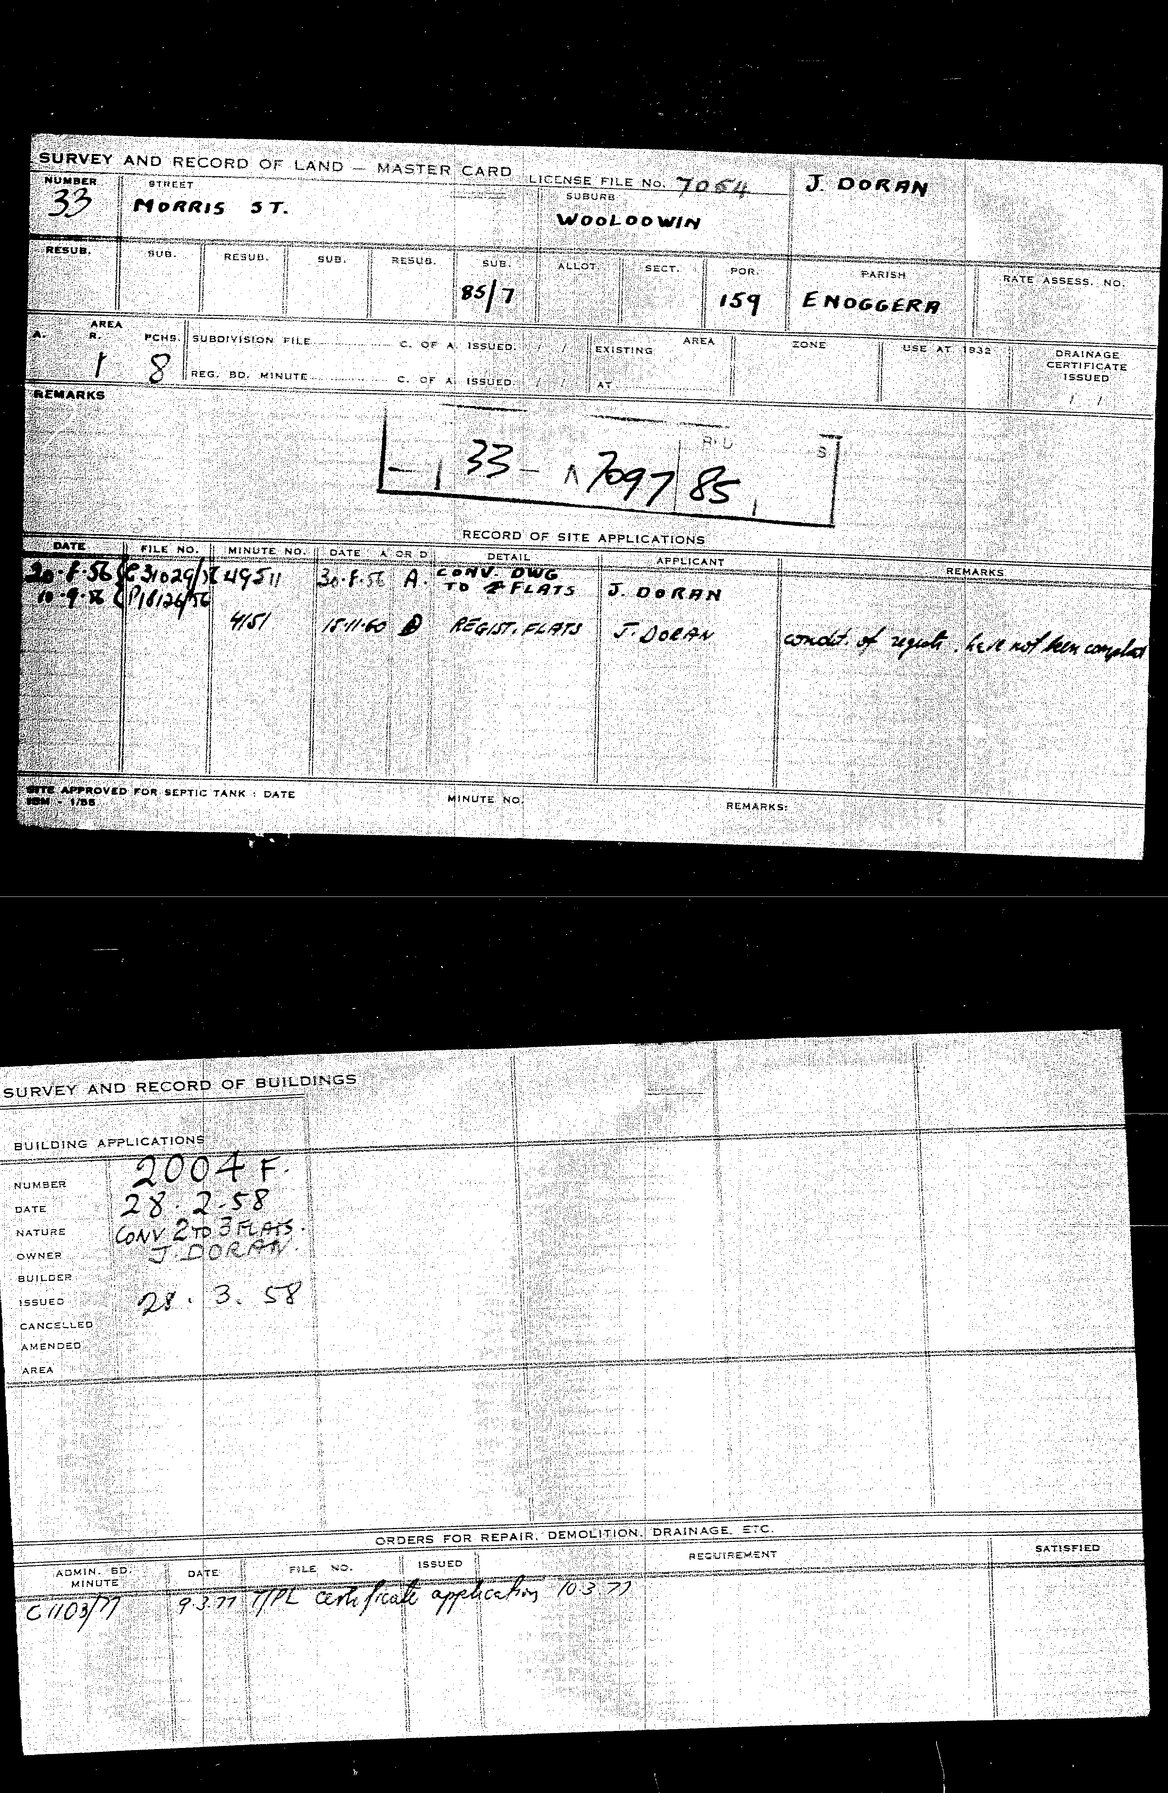 SURVEY AND RECORD OF LAND — MASTER CARD LICENSE FILE No. 7054 J. DORAN
NUMBER STREET SUBURB
33 MORRIS ST. WOOLOOWIN
RESUB. SUB. RESUB. SUB. RESUB. SUB. ALLOT. SECT. POR. PARISH RATE ASSESS. NO.
85/7 159 ENOGGERA
A. AREA R. PCHS. SUBDIVISION FILE C. OF A. ISSUED. / / EXISTING AREA ZONE USE AT 1932 DRAINAGE CERTIFICATE ISSUED
1 8 REG. BD. MINUTE C. OF A. ISSUED / / AT / /
REMARKS
33 - 7097 85
RECORD OF SITE APPLICATIONS
DATE FILE NO. MINUTE NO. DATE A OR D DETAIL APPLICANT REMARKS
20.8.56 49511 30.8.56 A. CONV. DWG J. DORAN
10.9.56 TO 2 FLATS
4151 15.11.60 REGIST. FLATS J. DORAN condit. of regist. have not been complet
SITE APPROVED FOR SEPTIC TANK : DATE MINUTE NO. REMARKS:
SURVEY AND RECORD OF BUILDINGS
BUILDING APPLICATIONS
NUMBER 2004 F.
DATE 28.2.58
NATURE CONV 2 TO 3 FLATS.
OWNER J. DORAN.
BUILDER
ISSUED 28.3.58
CANCELLED
AMENDED
AREA
ORDERS FOR REPAIR, DEMOLITION, DRAINAGE, ETC.
ADMIN. BD. MINUTE DATE FILE NO. ISSUED REQUIREMENT SATISFIED
C1103/77 9.3.77 T/PL certificate application 10.3.77